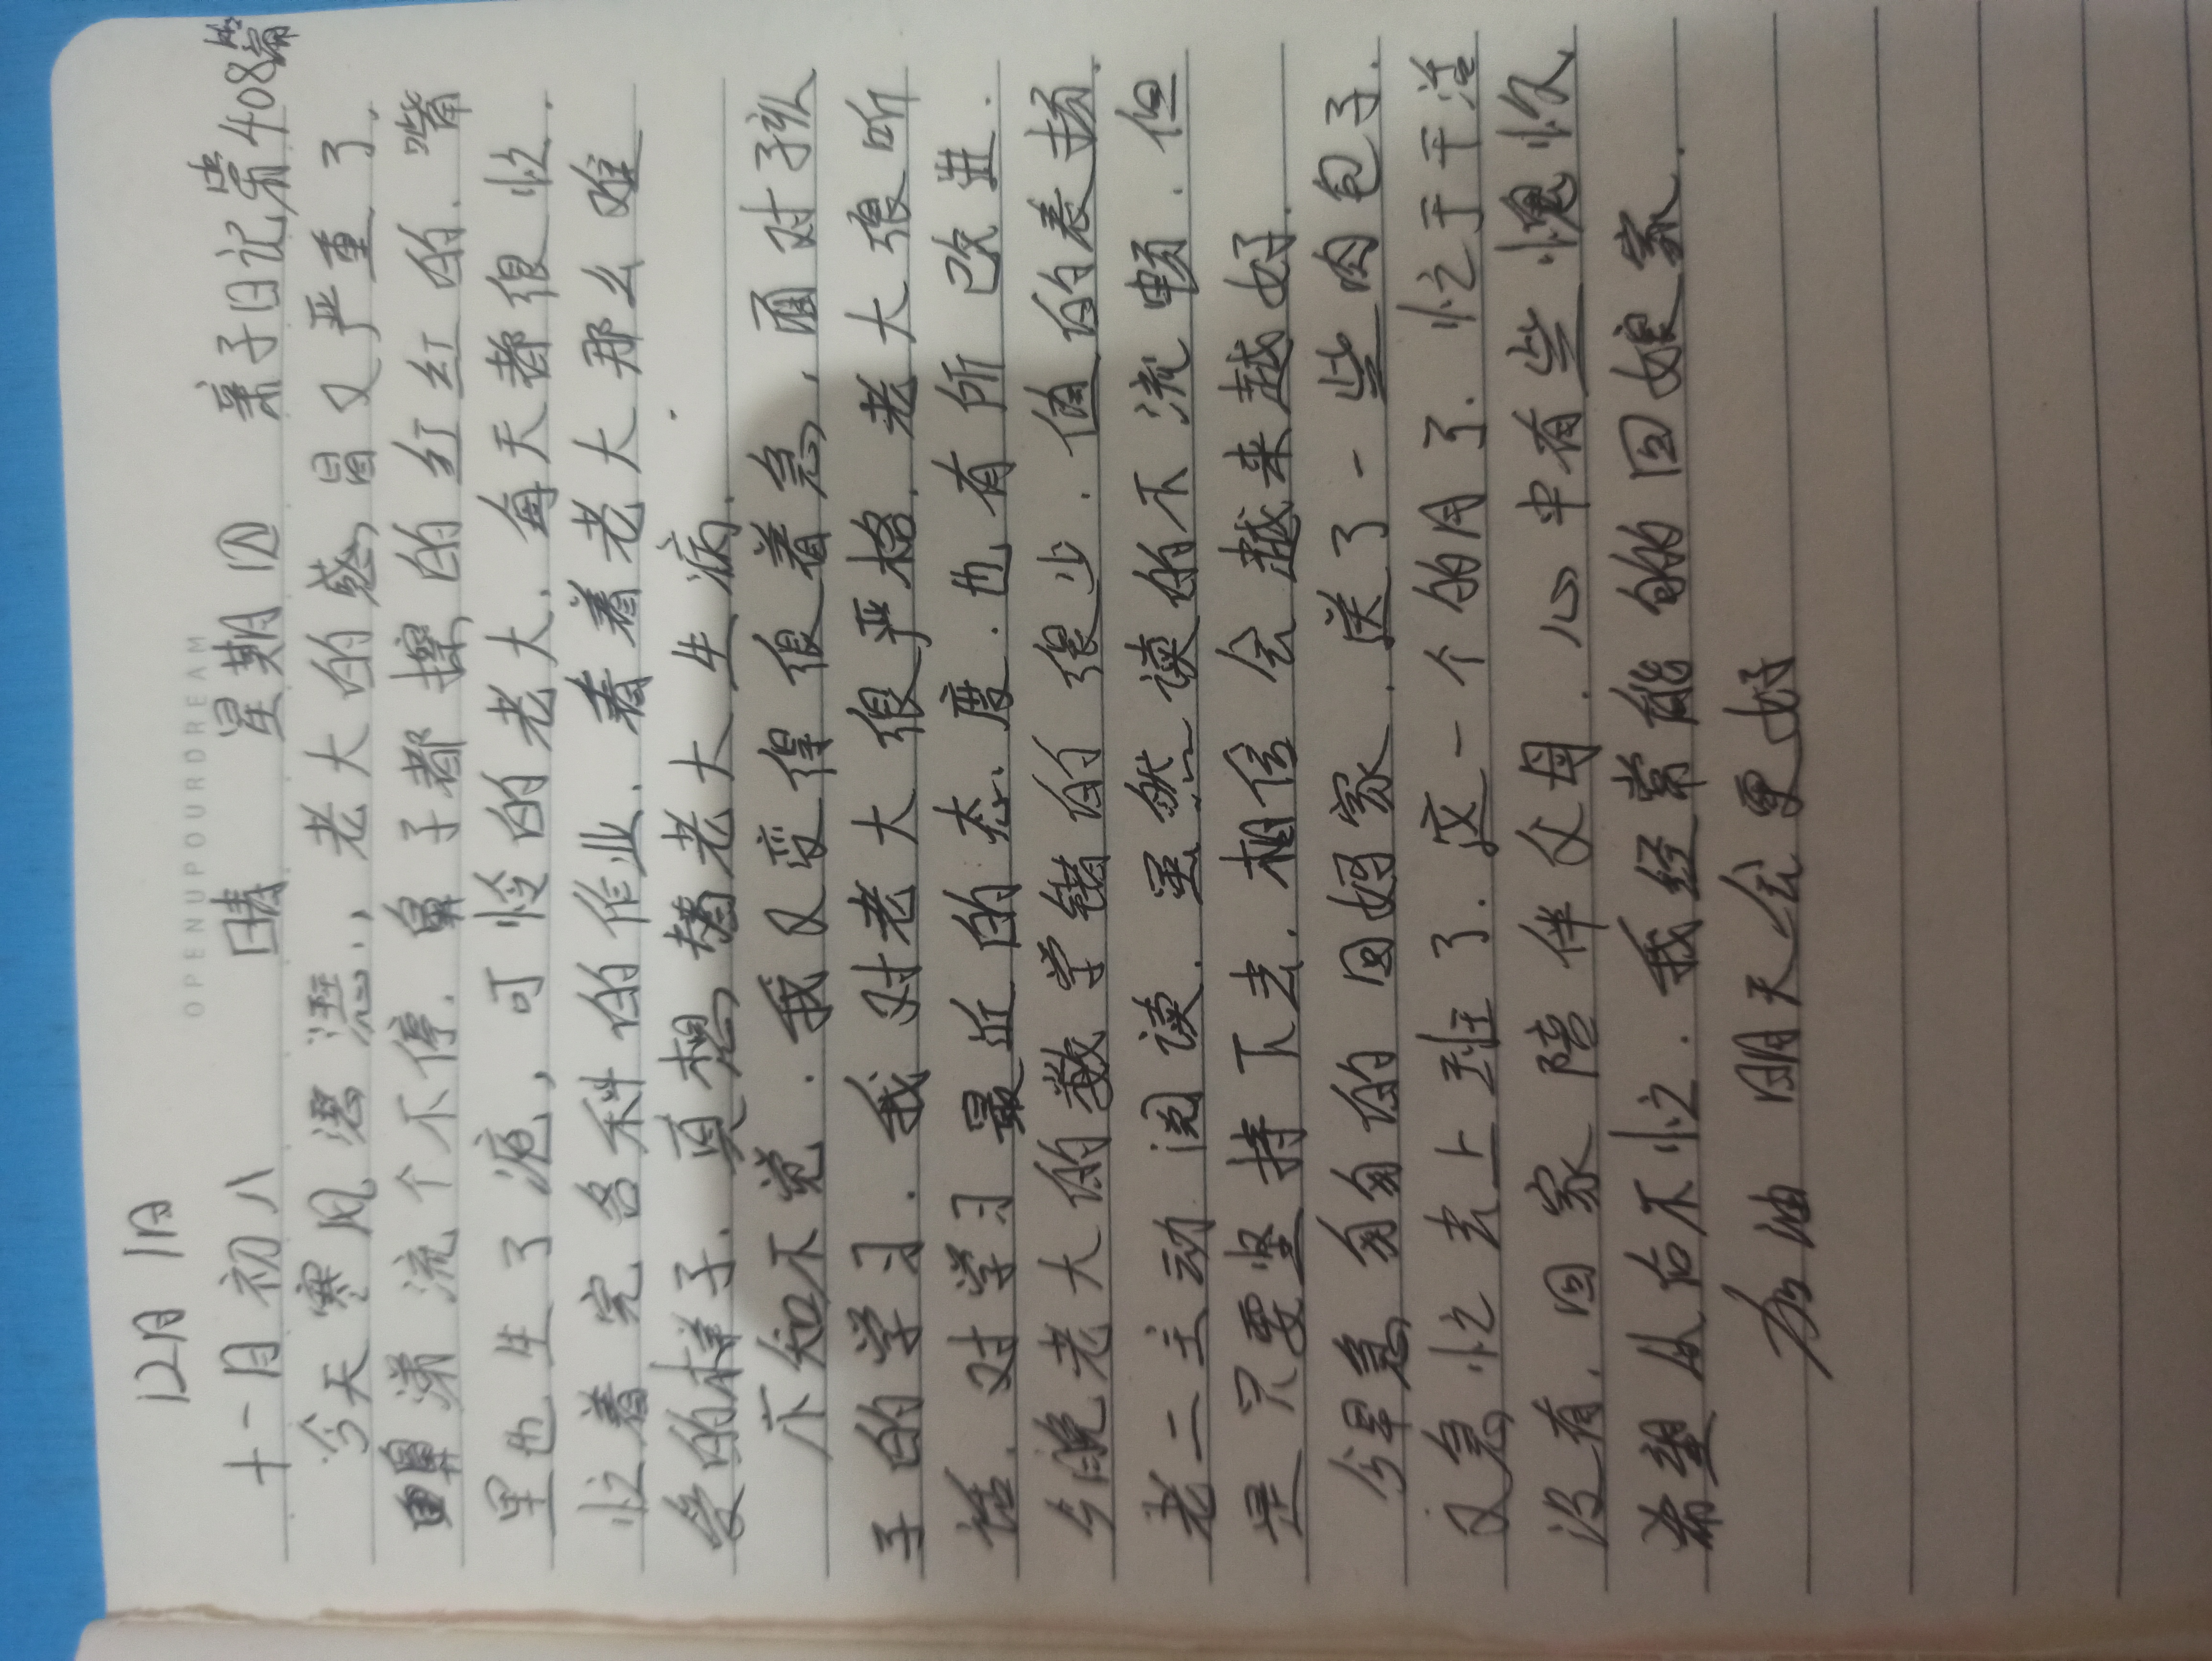 12月1日
OPENUPYOURDREAM
十一月初八 晴 星期四 亲子日记第408篇
今天寒风凛冽,老大的感冒又严重了.
鼻涕流个不停.鼻子都擦的红红的.嘴
里也生了疮,可怜的老大.每天都很忙.
忙着完各科的作业.看着老大那么难
受的样子.真想替老大生病.
不知不觉.我又变得很着急,面对孩
子的学习.我对老大很严格.老大很听
话.对学习最近的态度.也有所改进.
今晚老大的数学错的很少.值的表扬.
老二主动阅读.虽然读的不流畅.但
是只要坚持下去.相信会越来越好.
今早急匆匆的回妈家.送了一些肉包子.
又急忙去上班了.这一个的月了.忙于干活
没有.回家陪伴父母.心中有些愧疚
希望从后不忙.我经常能的回娘家.
加油 明天会更好